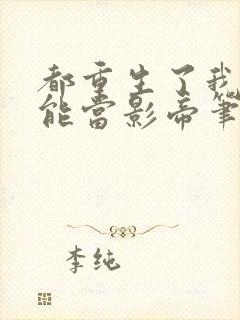 都重生了我
能當影帝筆
李纯